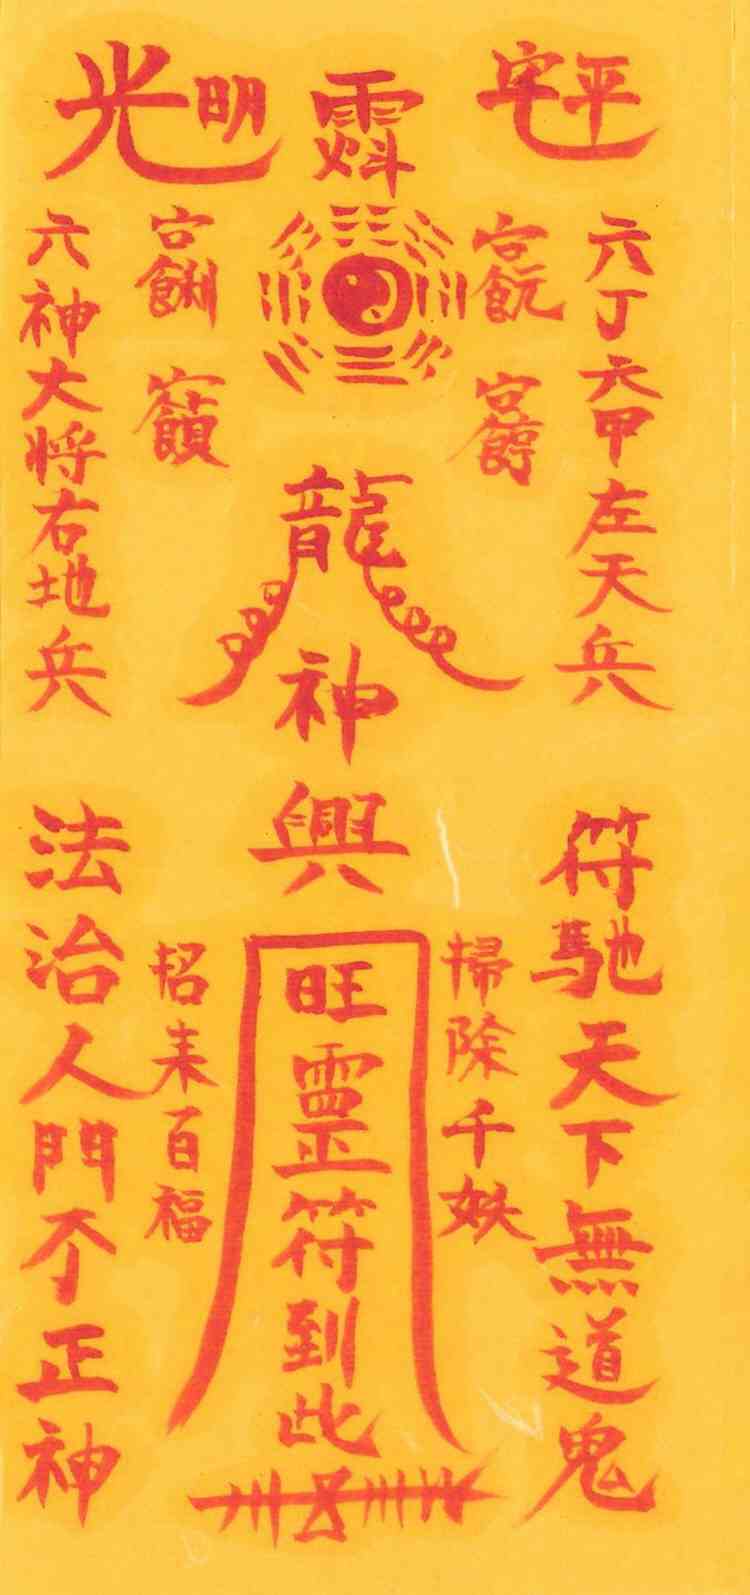 平安
六丁六甲左天兵
符馳天下無道鬼
掃除千妖
龍神興
旺靈符到此
光明
六神大将右地兵
招来百福
法治人門不正神